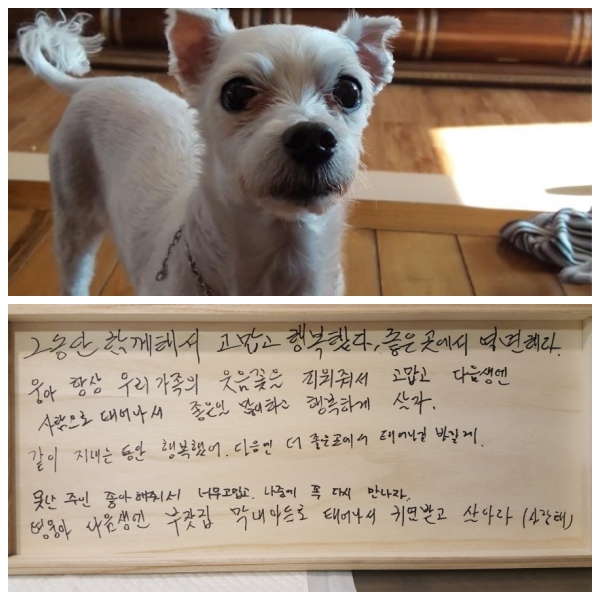 그동안 함께해서 고맙고 행복했다, 좋은곳에서 영면해라.
웅아 항상 우리가족의 웃음꽃을 피워줘서 고맙고 다음생엔
사람으로 태어나서 좋은일 많이하고 행복하게 살자.
같이 지내는 동안 행복했어. 다음엔 더 좋은곳에서 태어나길 바랄게.
못난 주인 좋아해줘서 너무고맙고. 나중에 꼭 다시 만나자.
다음생엔 부잣집 막내아들로 태어나서 귀염받고 살아라